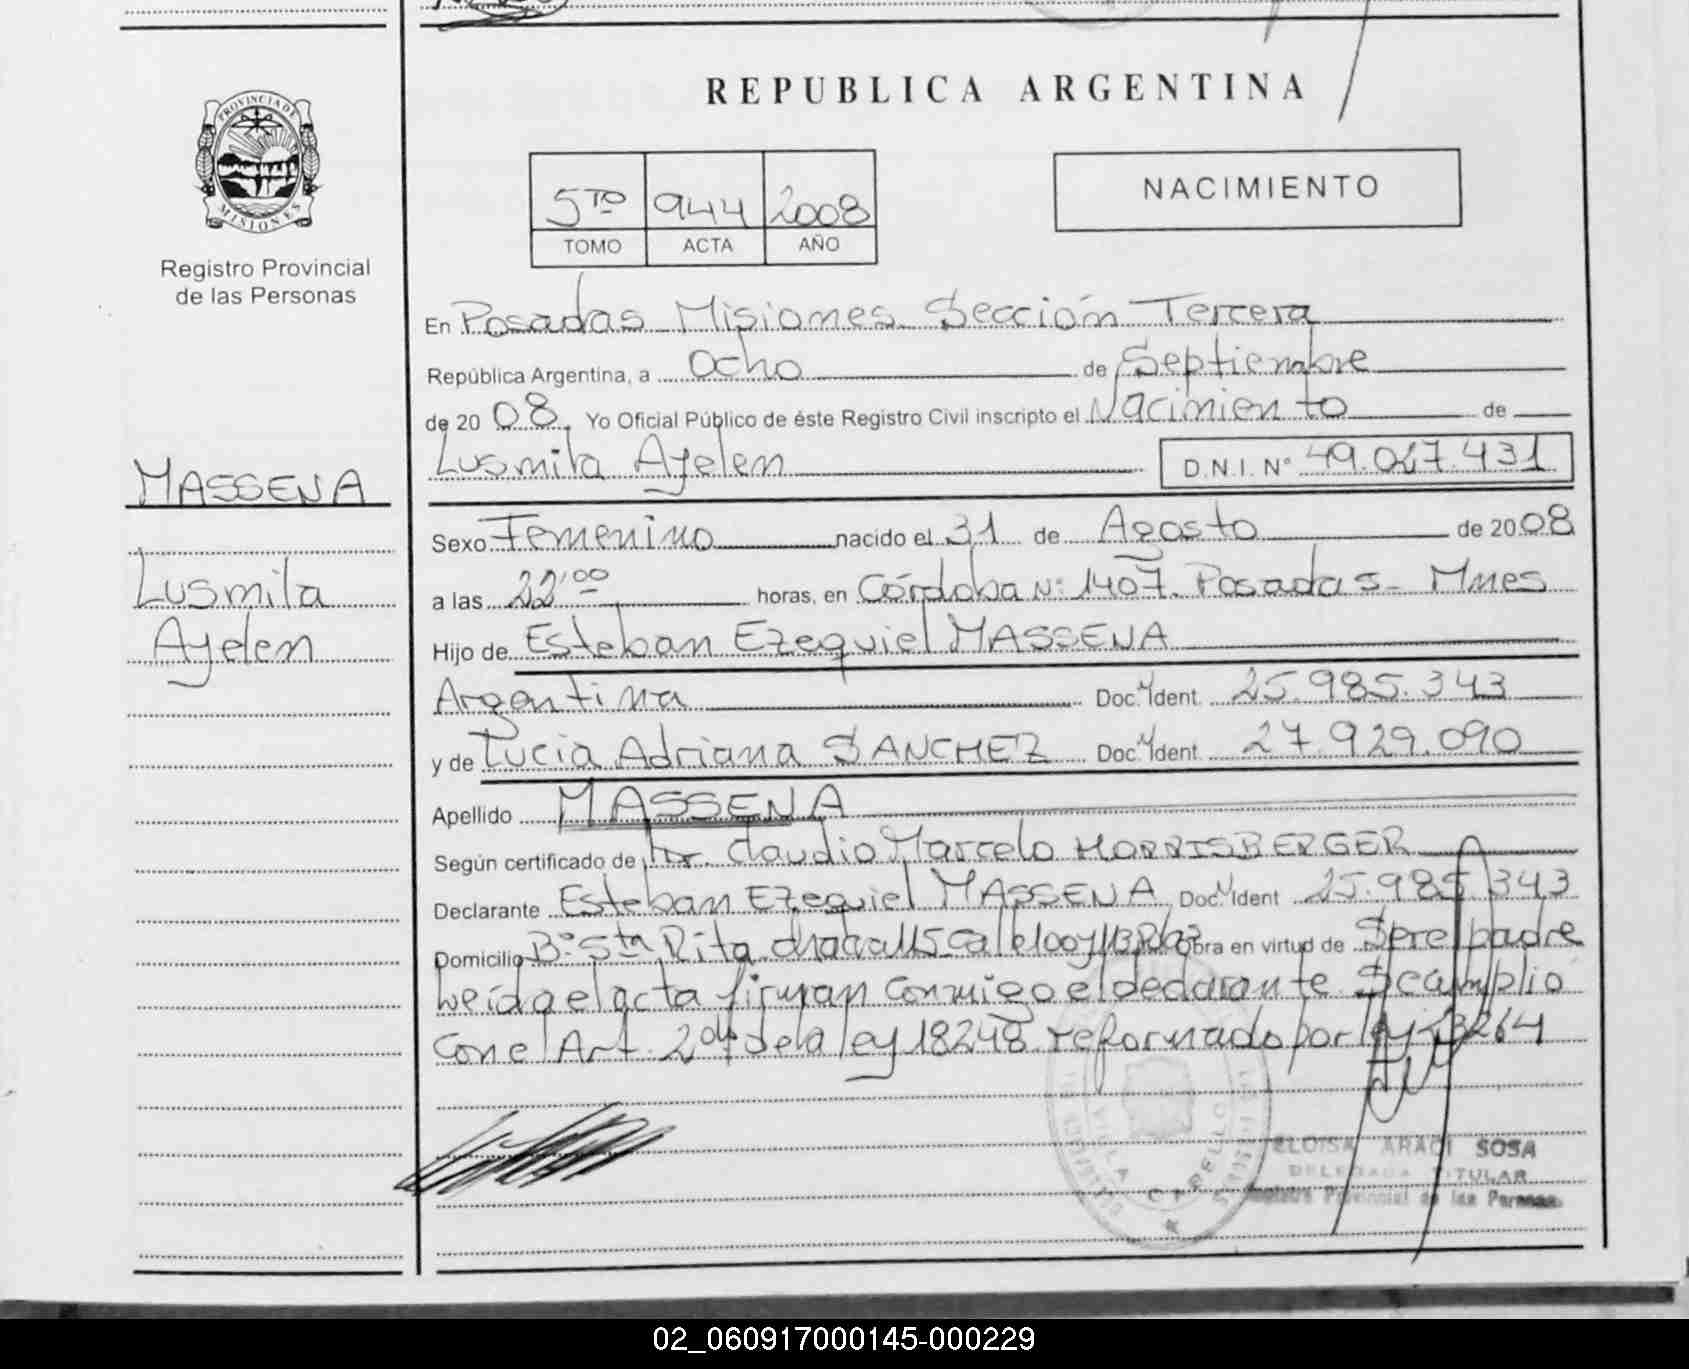 REPUBLICA ARGENTINA
PROVINCIA DE
MISIONES
Registro Provincial
de las Personas
5TO 944 2008
TOMO ACTA AÑO
NACIMIENTO
En Posadas Misiones Sección Tercera
República Argentina, a Ocho de Septiembre
de 2008. Yo Oficial Público de éste Registro Civil inscripto el Nacimiento de
Lusmila Ayelen D.N.I. N° 49.047.431
MASSENA
Lusmila
Ayelen
Sexo Femenino nacido el 31 de Agosto de 2008
a las 22'00 horas, en Córdoba N: 1407. Posadas - Mnes
Hijo de Esteban Ezequiel MASSENA
Argentina Doc. Ident. 25.985.343
y de Lucia Adriana SANCHEZ Doc. Ident. 27.929.090
Apellido MASSENA
Según certificado de Dr. Claudio Marcelo
Declarante Esteban Ezequiel MASSENA Doc. Ident 25.985.343
Domicilio B° Sta Rita Obra en virtud de Ser el padre
Leída el acta firman conmigo el declarante Se cumplio
Con el Art. 2do de la ley 18248 reformado por ley 23264
VILLA CABELLO
ELOISA ARACI SOSA
DELEGADA TITULAR
Registro Provincial de las Personas
02_060917000145-000229